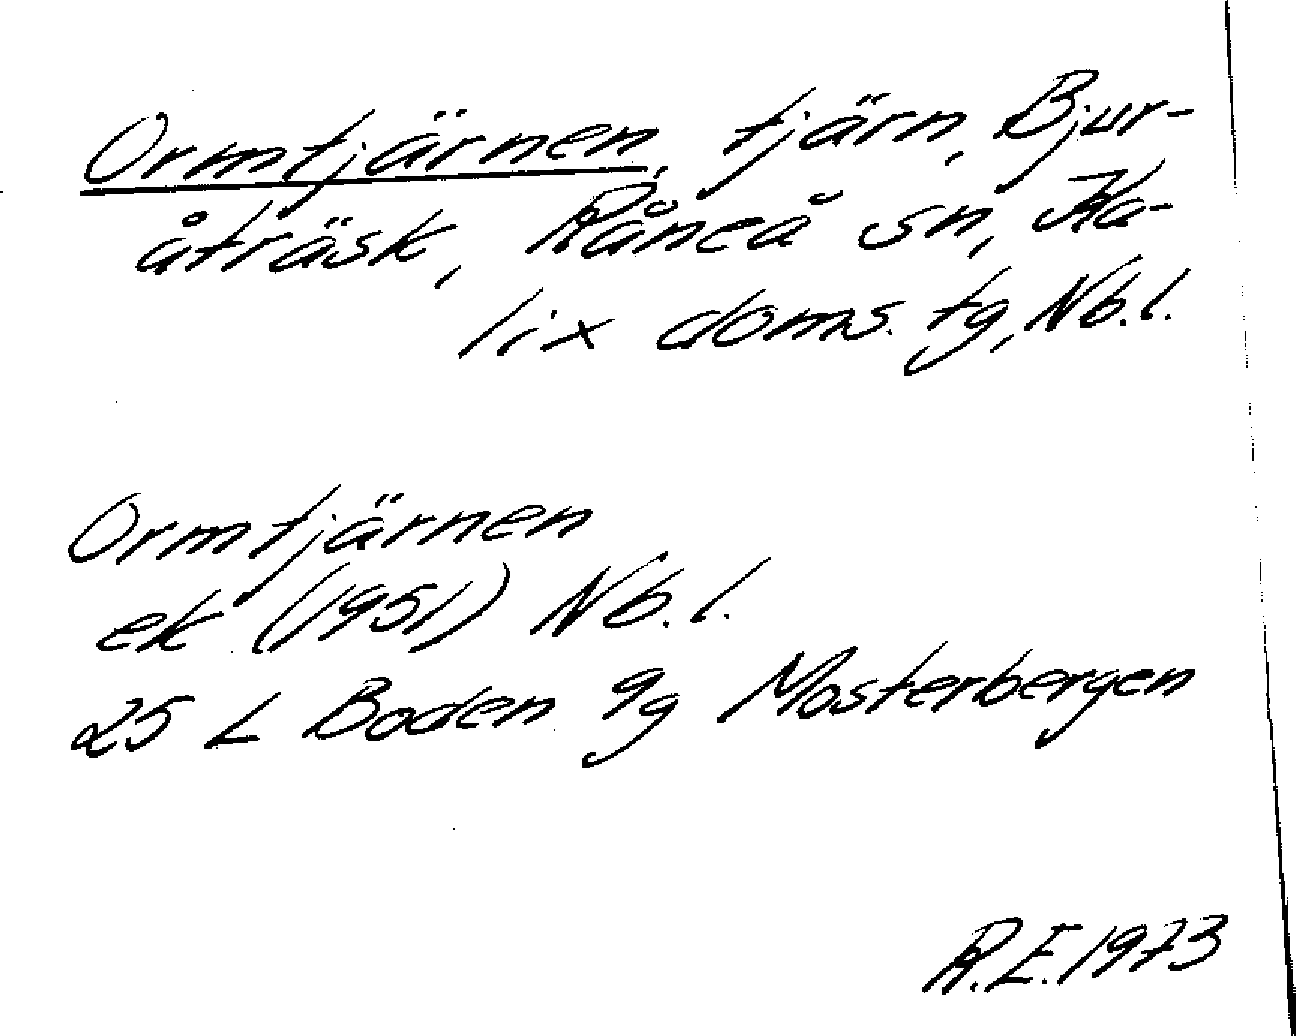 Ormtjärnen, tjärn, Bjur-
åträsk, Råneå sn, Ka-
lix doms. tg, Nb.l.
Ormtjärnen
ek (1951) Nb.l.
25 L Boden 9g Mosterbergen
R.E.1973